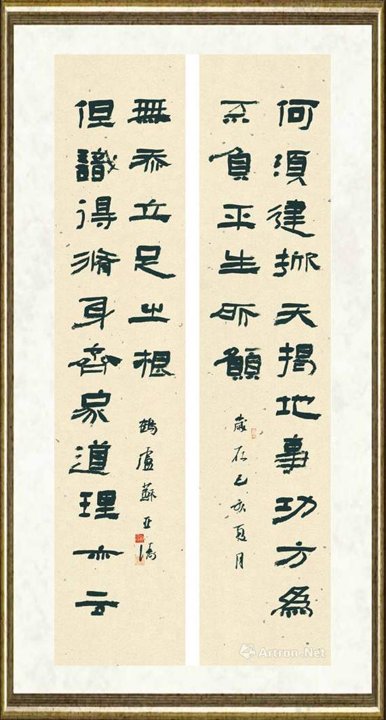 何須建掀天揭地事功方為
不負平生所願
歲在己亥夏月
但識得脩身齊家道理亦云
無忝立足之根
鶴廬蘇亚
Artron.Net